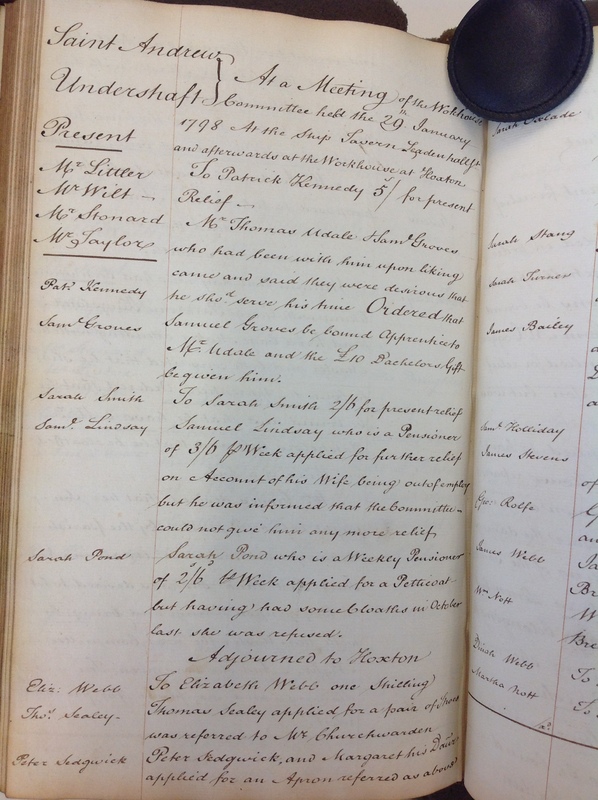 Saint Andrew
Undershaft } At a Meeting of the Workhouse
Committee held the 29th January
1798 At the Ship Tavern Leadenhall St
and afterwards at the Workhouse at Hoxton
Present
Mr Littler
Mr Wilt
Mr Stonard
Mr Taylor
To Patrick Kennedy 5/ for present
Relief
Mr Thomas Udale & Saml Groves
who had been with him upon liking
came and said they were desirous that
Patk Kennedy
he shod serve his time Ordered that
Saml Groves
Samuel Groves be bound Apprentice to
Mr Udale and the £10 Bachelors Gift
be given him.
Sarah Smith
To Sarah Smith 2/6 for present relief
Saml Lindsay
Samuel Lindsay who is a Pensioner
of 3/6 p Week applied for further relief
on Account of his Wife being out of employ
but he was informed that the Committee
could not give him any more relief
Sarah Pond
Sarah Pond who is a Weekly Pensioner
of 2s/6d Week applied for a Petticoat
but having had some Cloaths in October
last she was refused.
Adjourned to Hoxton
Eliz: Webb
To Elizabeth Webb one Shilling
Thos Sealey
Thomas Sealey applied for a pair of Shoes
was referred to Mr Churchwarden
Peter Sedgwick
Peter Sedgwick, and Margaret his Daur
applied for an Apron referred as above
Sarah Stang
Sarah Turner
James Bailey
Saml Holliday
James Stevens
Geo: Rolfe
James Webb
Wm Nott
Dinah Webb
Martha Nott